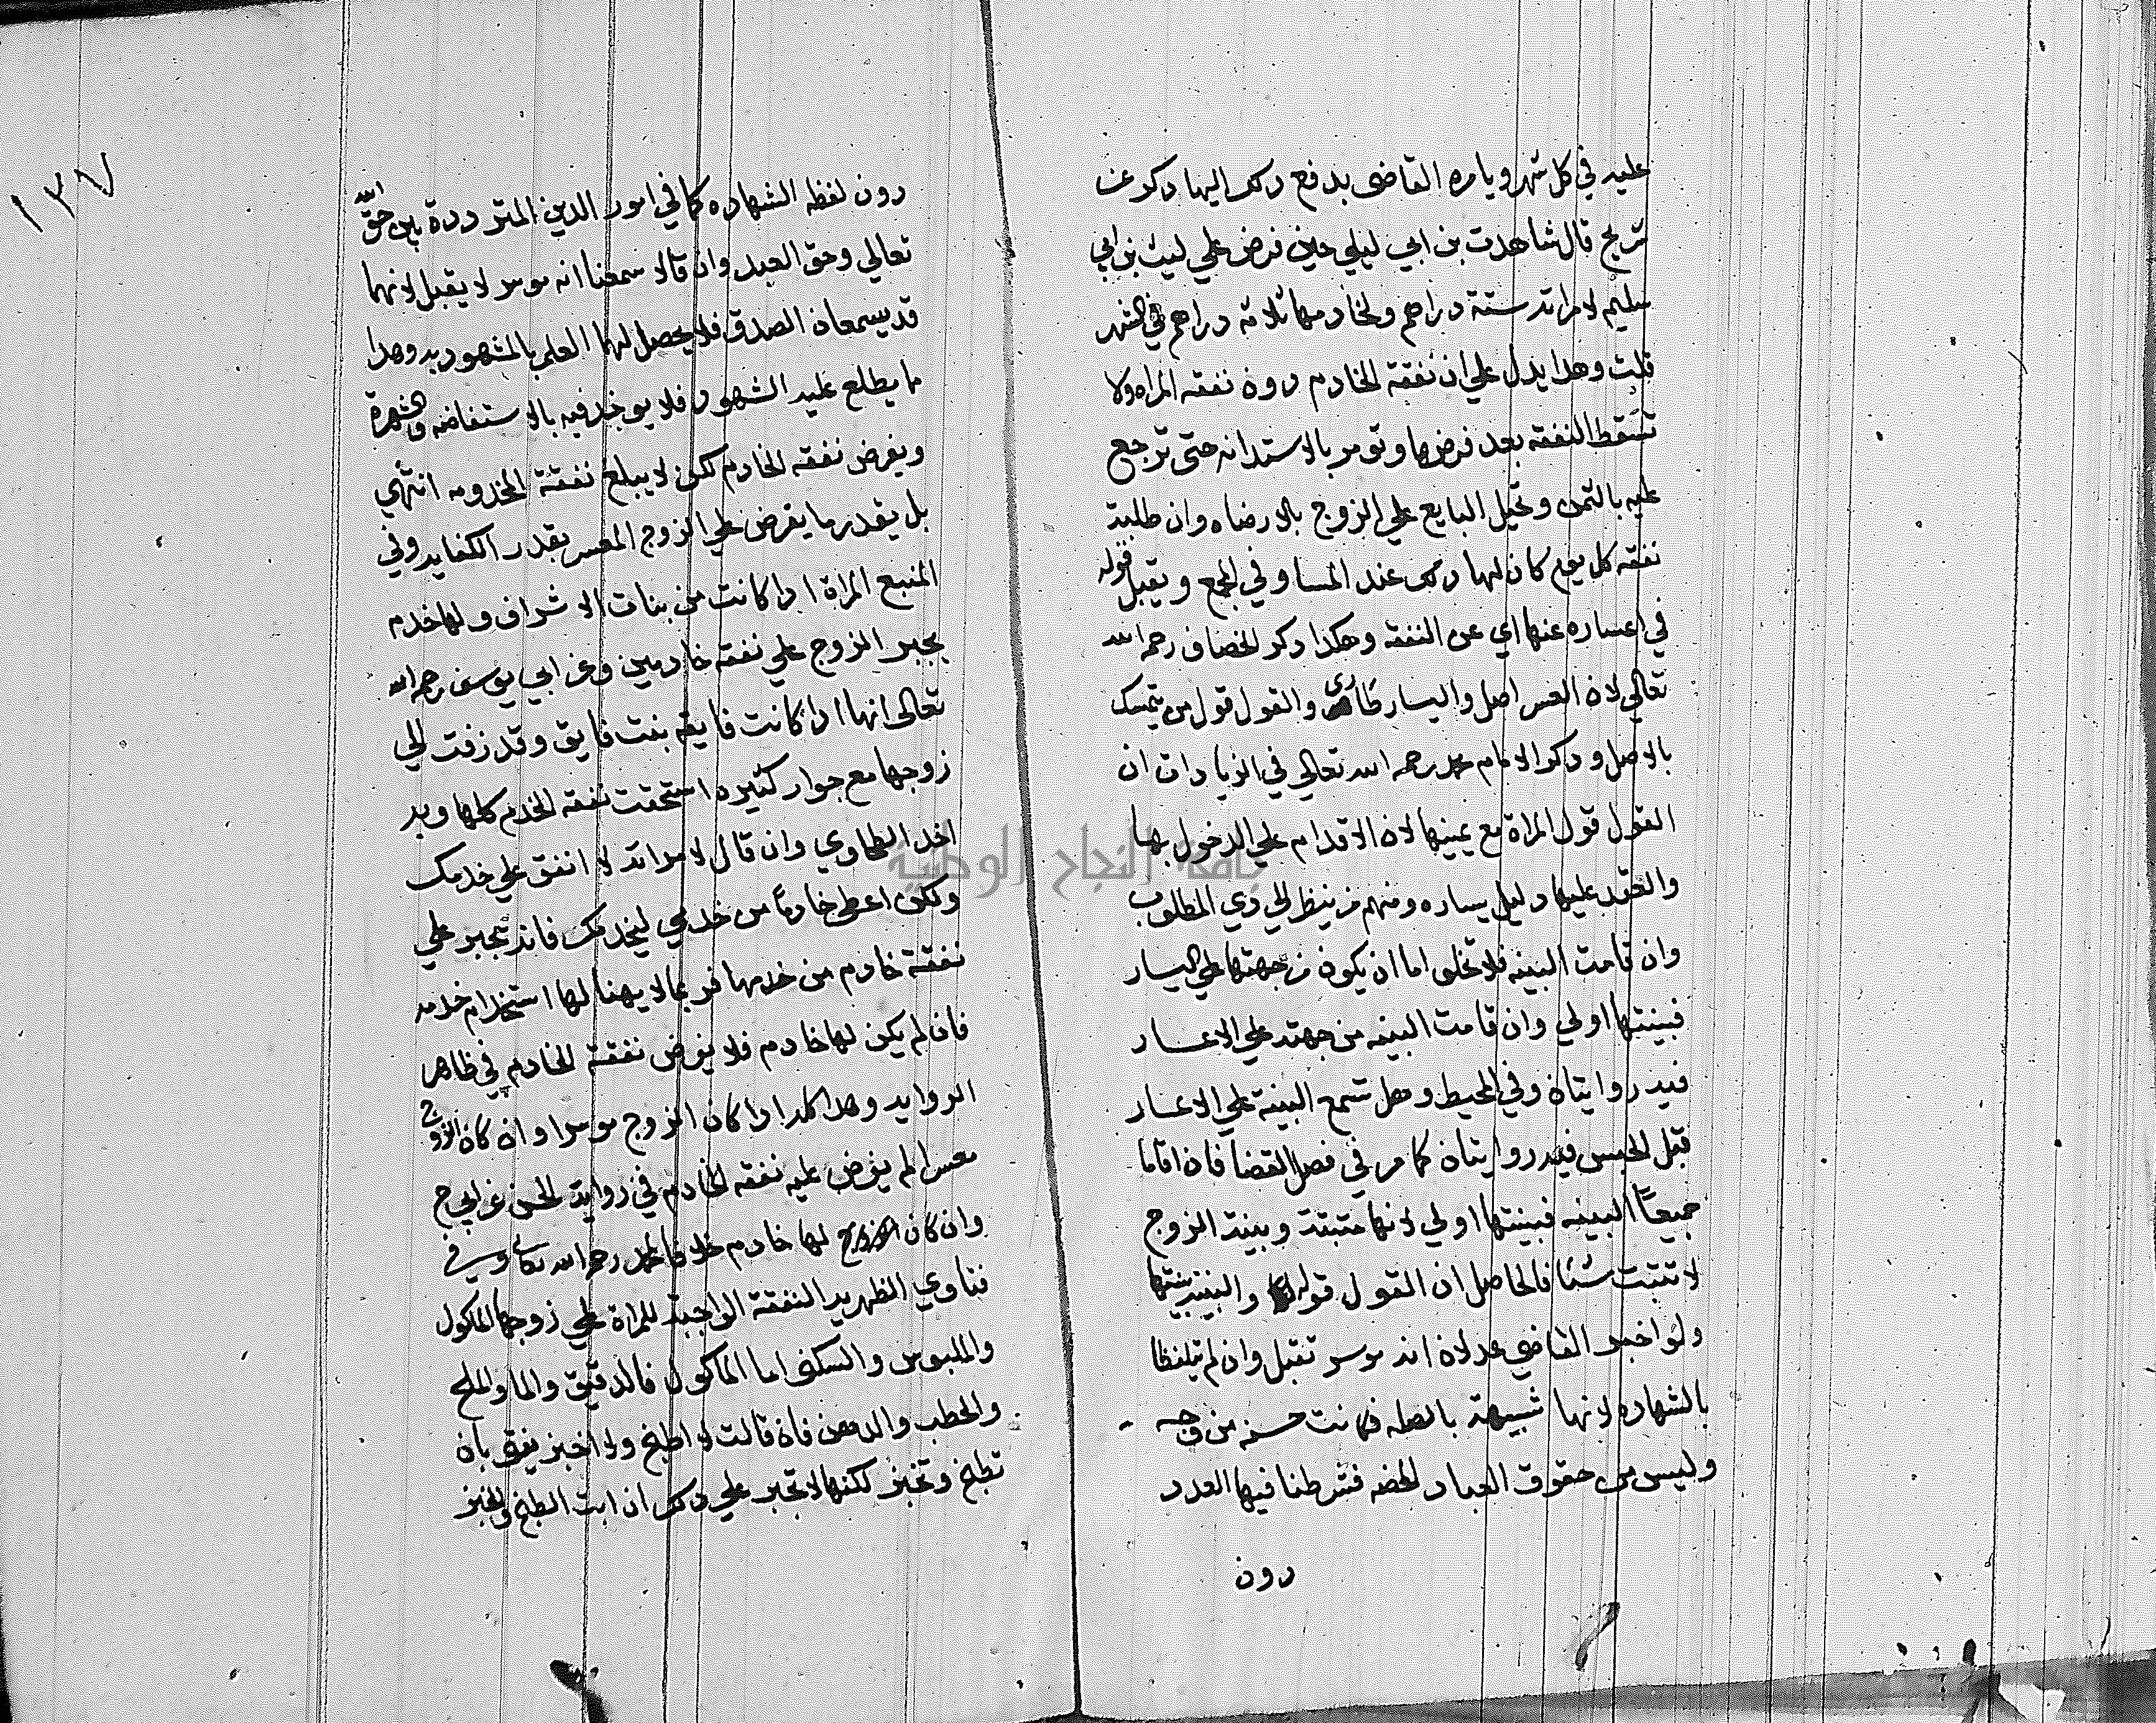 عليه في كل شهر ويامره القاضى بدفع دلك اليها دكر عن
شريح قال شاهدت بن ابي ليلي حين فرض علي ليث بن ابي
سليم لامراته ستة دراهم ولخادمها ثلاثه دراهم في الشهر
قلت وهدا يدل علي ان نفقة الخادم دون نفقه المراه ولا
تسقط النفقه بعد فرضها وتومر بالاستدانه حتى ترجع
عليه بالثمن وتحيل البايع علي الزوج بلا رضاه وان طلبة
نفقه كل يوم كان لها دلك عند المسا وفي الجمع ويقبل قوله
في اعساره عنها اي عن النفقه وهكدا دكر الخصاف رحمه الله
تعالي لان العسر اصل واليسار طاري والقول قول من يتمسك
بالاصل ودكر الامام محمد رحمه الله تعالي في الزيادات ان
القول قول المراة مع يمينها لان الاقدام علي الدخول بها
والعقد عليها دليل يساره ومنهم من ينظر الي زي المطلوب
وان قامت البينه فلا تخلى اما ان يكون من جهتها علي اليسار
فبينتها اولي وان قامت البينه من جهته علي الاعسار
فيه روايتان وفي المحيط وهل تسمع البينة علي الاعسار
قبل الحبس فيه روايتان كما مر في فصل القضا فان اقاما
جميعاً البينه فبينتها اولي لانها مثبتة وبينة الزوج
لا تثبت شئا فالحاصل ان القول قوله والبينة بينتها
ولو اخبر القاضي عدلان انه موسر تقبل وان لم يتلفظا
بالشهاده لانها شبيهة بالصله فكانت حسنه من وجه
وليس من حقوق العباد المحضه فشرطنا فيها العدد
دون
١٣٧
دون لفظه الشهاده كما في امور الدين المترددة بين حق الله
تعالي وحق العبد وان قالا سمعنا انه موسر لا يقبل لانهما
قد يسمعان الصدق فلا يحصل لهما العلم بالمشهود به وهدا
ما يطلع عليه الشهود فلا يوخد فيه بالاستفاضه والشهرة
ويفرض نفقه الخادم لكن لا يبلغ نفقة المخدومه انتهي
بل يقدر ما يفرض علي الزوج المعسر بقدر الكفايه وفي
المنبع المراة ادا كانت من بنات الاشراف ولها خدم
يجبر الزوج علي نفقه خادمين وعن ابي يوسف رحمه الله
تعالى انها ادا كانت فايقه بنت فايق وقد زفت الي
زوجها مع جوار كثيره استحقت نفقه الخدم كلها وبه
اخد الطحاوي وان قال لامراته لا انفق علي خدمك
ولكن اعطي خادماً من خدمي ليخدمك فانه يجبر علي
نفقة خادم من خدمها فربما لا يهنا لها استخدام خدمه
فان لم يكن لها خادم فلا يفرض نفقة الخادم في ظاهر
الروايه وهدا كله ادا كان الزوج موسرا وان كان الزوج
معسرا لم يفرض عليه نفقه الخادم في رواية الحسن عن ابي ح
وان كان لها خادم خلافا لمحمد رحمه الله تعالى وفي
فتاوي الظهريه النفقة الواجبة للمراة علي زوجها الماكول
والملبوس والسكنى اما الماكول فالدقيق والما والملح
والحطب والدهن فان قالت لا اطبخ ولا اخبز يفتى بان
تطبخ وتخبز لكنها لا تجبر علي دلك ان ابت الطبخ والخبز
جامعة النجاح الوطنية